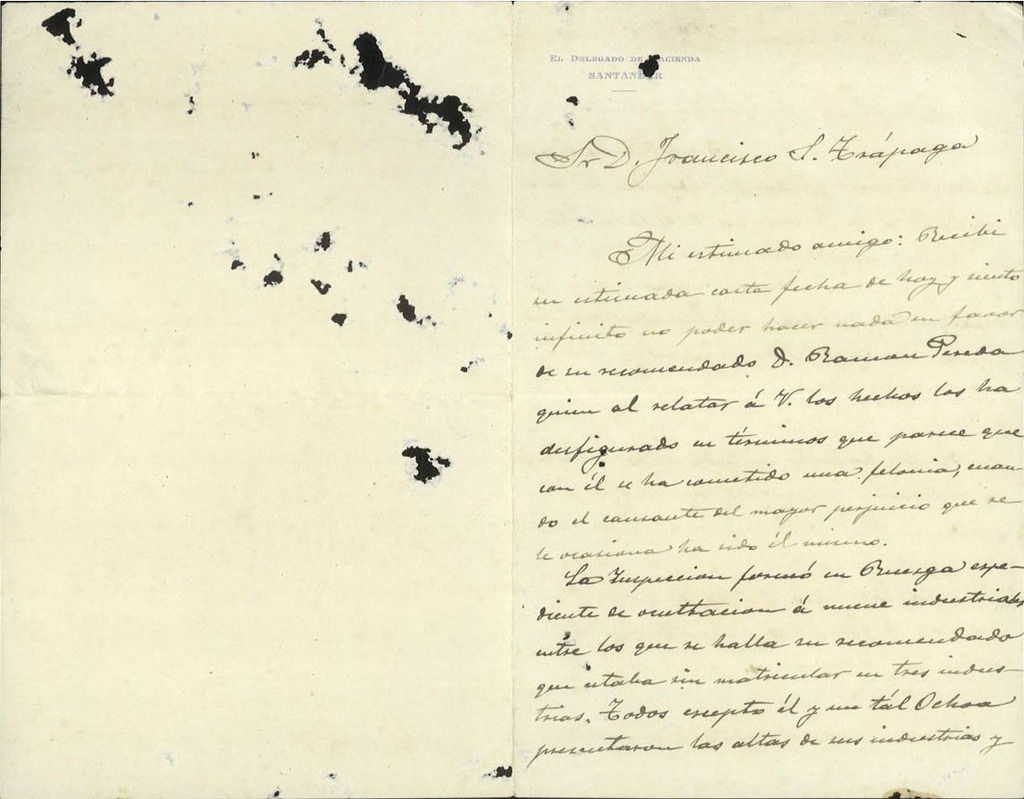 EL DELEGADO DE HACIENDA
SANTANDER
Sr D. Francisco S. Trápaga
Mi estimado amigo: Recibi
su estimada carta fecha de hoy y siento
infinito no poder hacer nada en favor
de su recomendado D. Ramon Pereda
quien al relatar á V. los hechos los ha
desfigurado en términos que parece que
con él se ha cometido una felonia, cuan-
do el causante del mayor perjuicio que se
le ocasiona ha sido él mismo.
La Inspeccion formó en Ruesga espe-
diente de ocultacion á nueve industriales
entre los que se halla su recomendado
que estaba sin matricular en tres indus-
trias. Todos escepto él y un tál Ochoa
presentaron las altas de sus industrias y